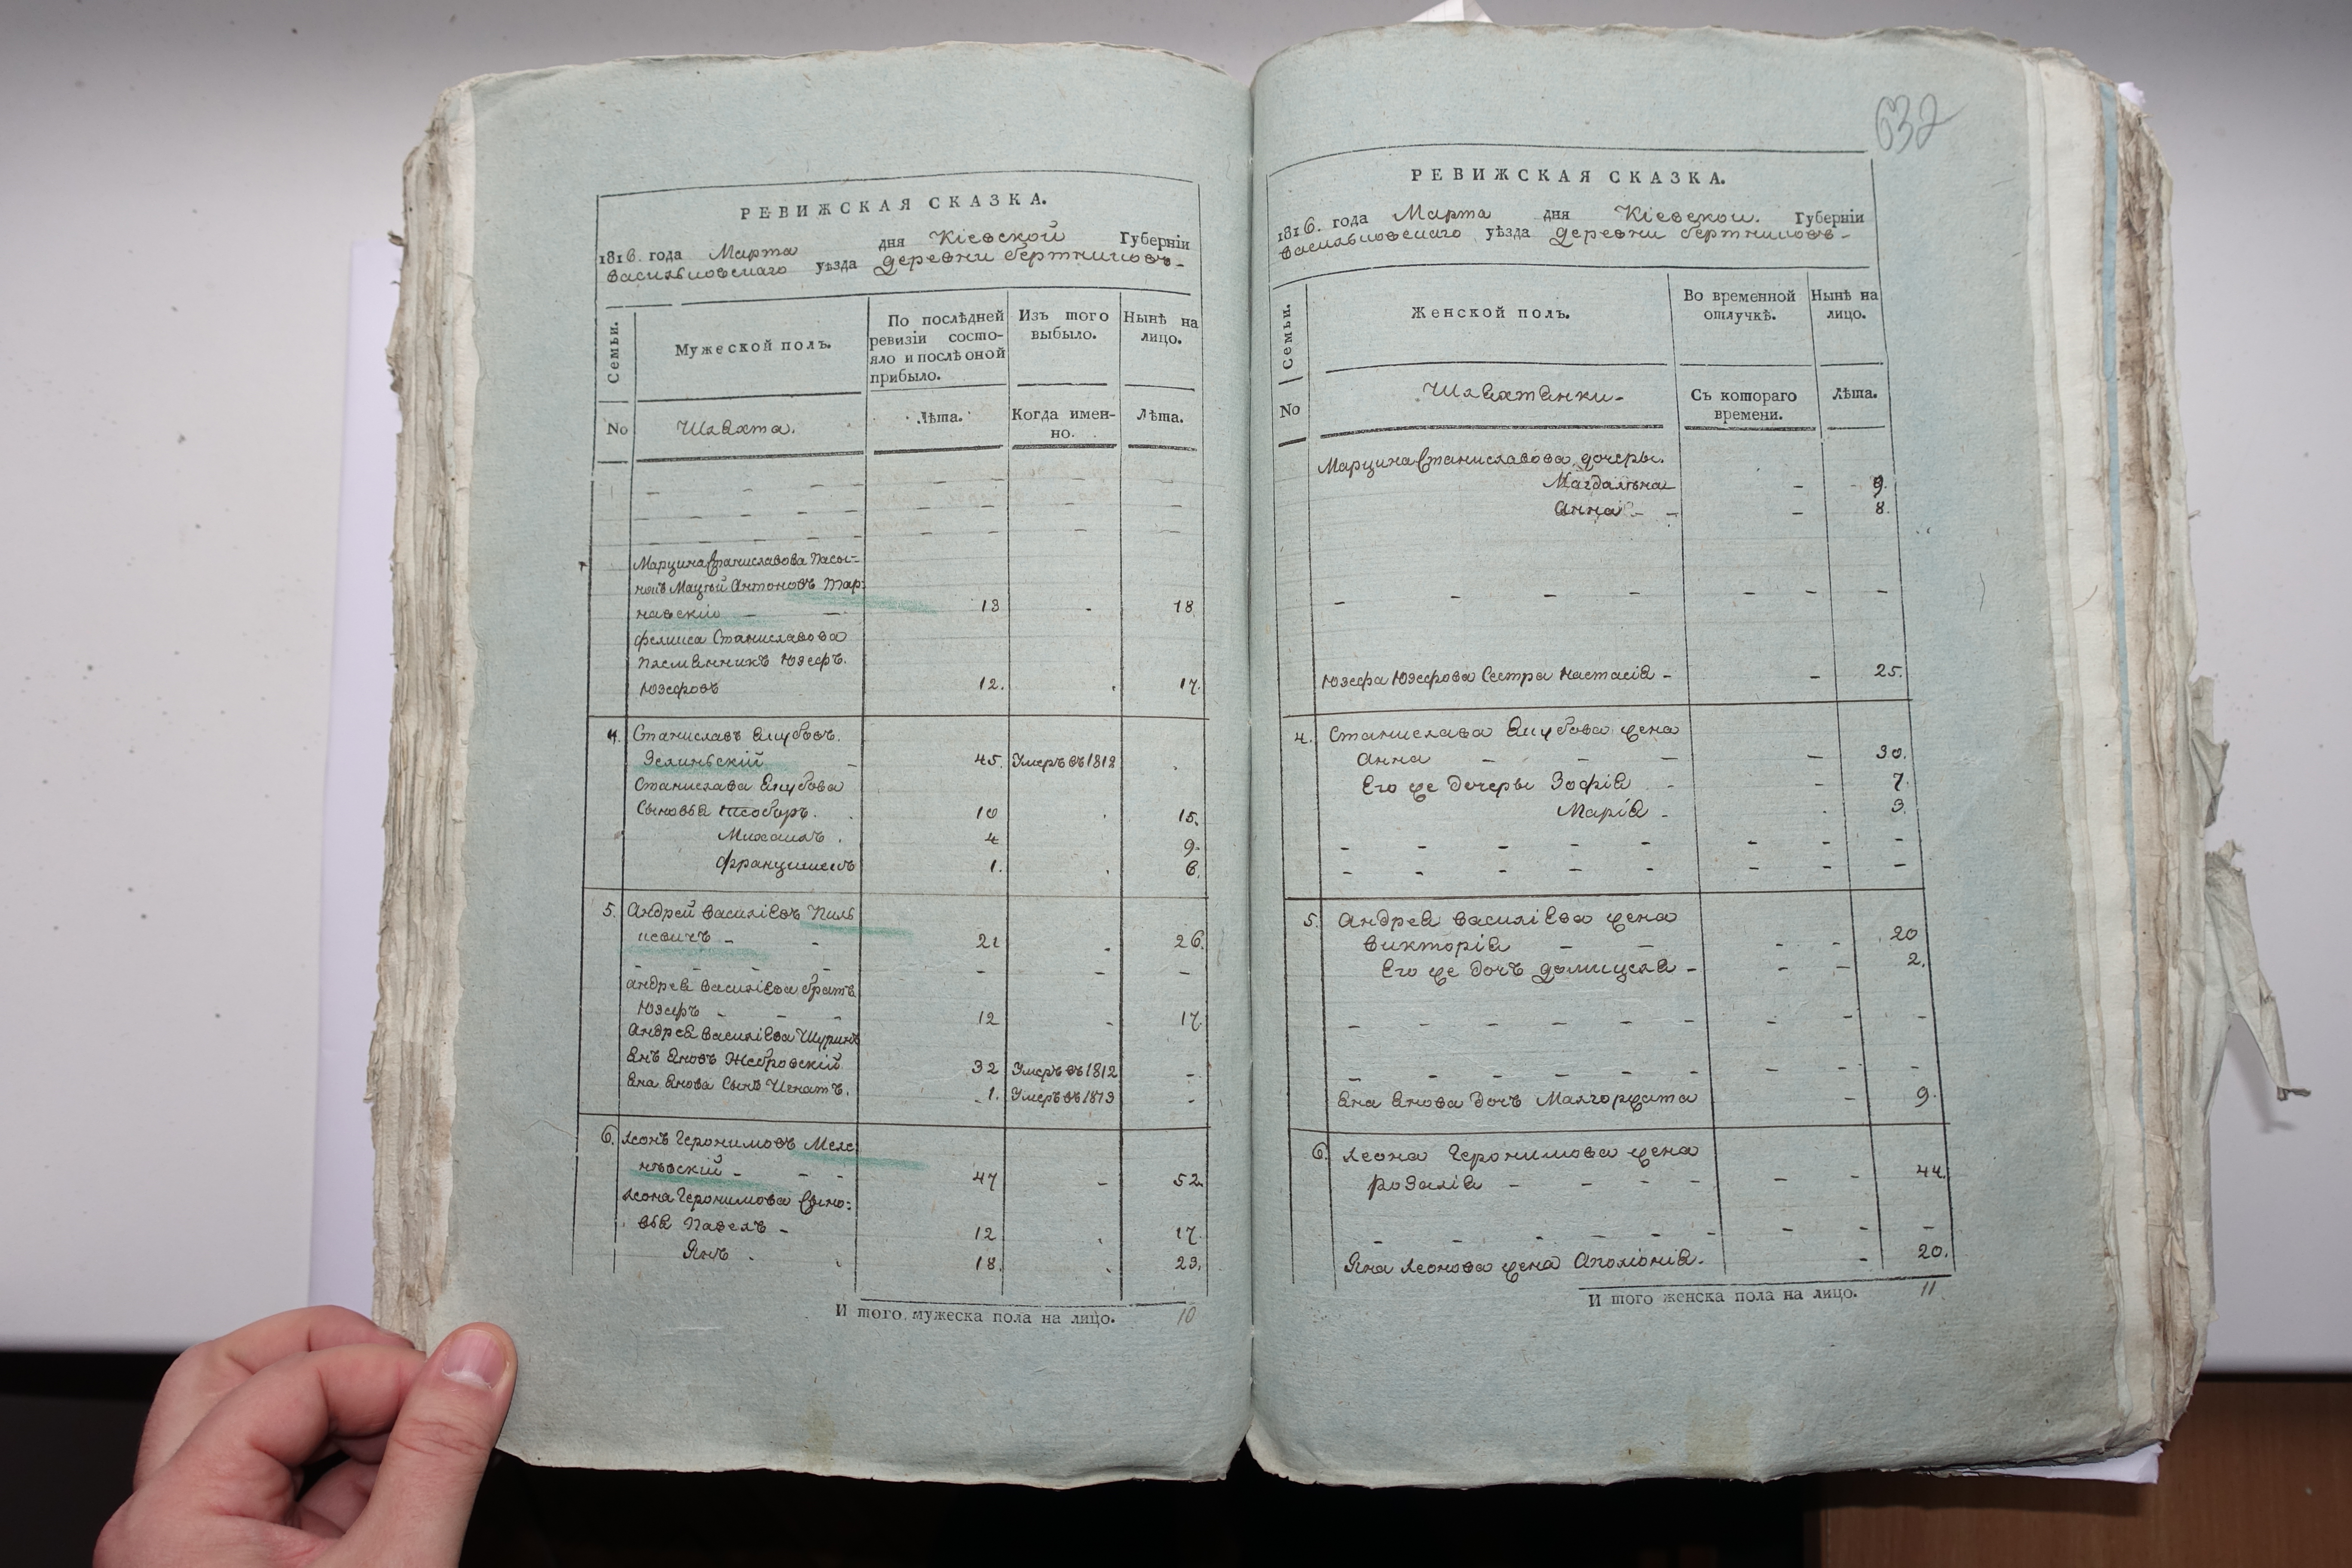 РЕВИЖСКАЯ СКАЗКА.
1816. года Марта дня Кіевской Губерніи
Васильковскаго уѣзда деревни Бертниковъ-
Семьи.
Мужеской полъ.
По послѣдней ревизіи состо-
яло и послѣ оной
прибыло.
Изъ того
выбыло.
Нынѣ на
лицо.
No
Шляхта.
Лѣта.
Когда имен-
но.
Лѣта.
Марцина Станиславова Пасы-
нокъ Мацѣй Антоновъ Тар-
навскій - - 13 - 18
Фелиса Станиславова
Племянникъ Юзефъ.
Юзефовъ 12. . 17.
4. Станиславъ Якубовъ.
Зелинскій - 45. Умеръ въ 1812 .
Станислава Якубова
Сыновья 10 . 15.
Михаилъ . 4 9.
Францишекъ 1. . 6.
5. Андрей Василіевъ Пиль
кевичъ - - 21 - 26.
Андрея Василіева братъ
Юзефъ - - - 12 - 17
Андрея Василіева Шуринъ
Янъ Яновъ Жебровскій 32 Умеръ въ 1812 -
Яна Янова Сынъ Игнатъ. 1. Умеръ въ 1813 -
6. Леонъ Геронимовъ Меле
нѣвскій - - - 47 - 52.
Леона Геронимова Сыно-
вья Павелъ - 12 . 17.
Янъ . 18. . 23.
И того мужеска пола на лицо. 10
632
РЕВИЖСКАЯ СКАЗКА.
1816. года Марта дня Кіевской. Губерніи
Васильковскаго уѣзда деревни Бертниковъ-
Семьи.
Женской полъ.
Во временной
отлучкѣ.
Нынѣ на
лицо.
No
Шляхтянки.
Съ котораго
времени.
Лѣта.
Марцина Станиславова дочеры.
Магдальна - 9.
Анна - - - 8.
Юзефа Юзефова Сестра Настасія - - 25.
4. Станислава Якубова жена
Анна - - - - 30.
Его же дочеры Зофія - - 7.
Марія - . 3.
5. Андрея Василіева жена
Викторія - - - - 20
Его же дочь Домицеля - - - 2.
Яна Янова дочь Малгоржата - 9.
6. Леона Геронимова жена
Розалія - - - - - - 44
Яна Леонова жена Аполіонія. - 20.
И того женска пола на лицо. 11